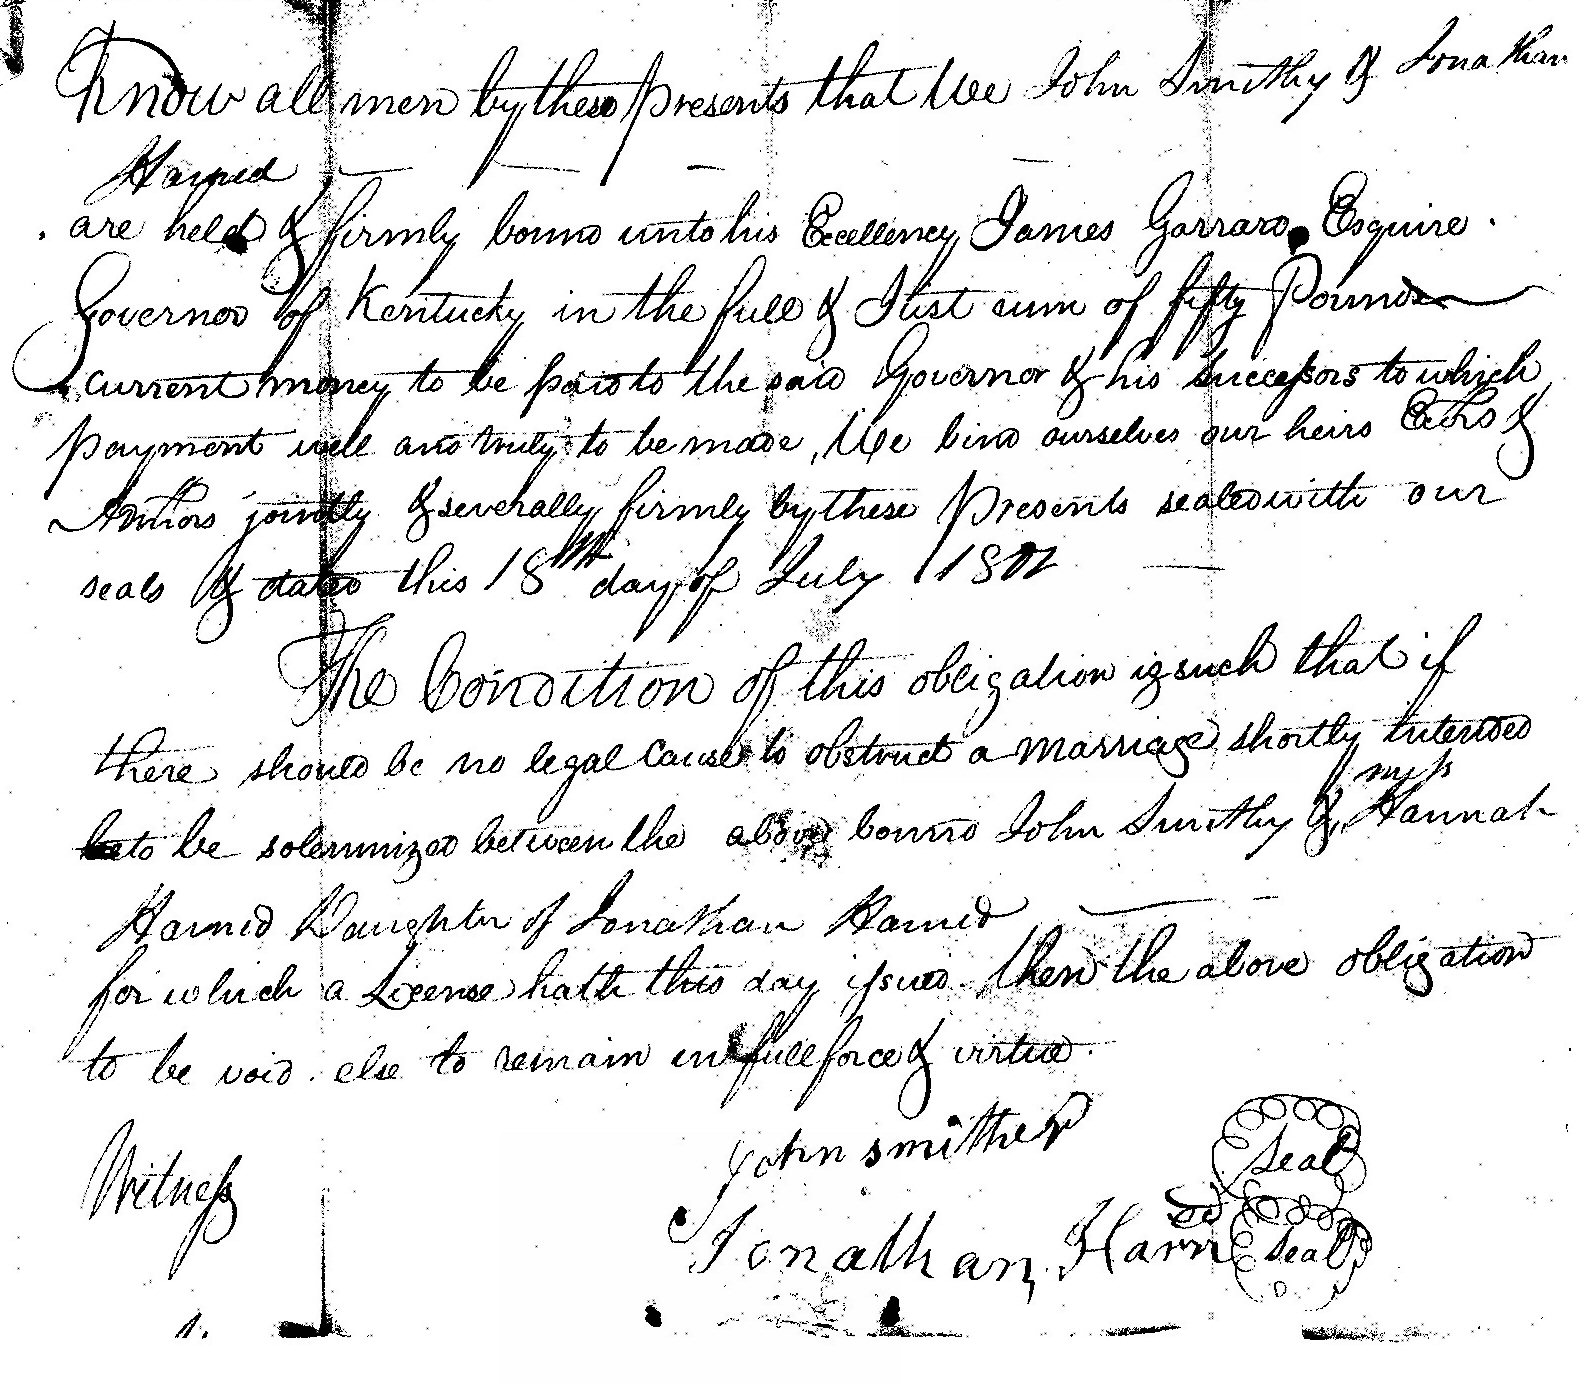 Know all men by these presents that We John Smithy & Jonathan
Harned
are held & firmly bound unto his Excellency James Garrard Esquire
Governor of Kentucky in the full & Just sum of fifty Pounds
current money to be paid to the said Governor & his successors to which
payment well and truly to be made, We bind ourselves our heirs Exors &
Admors jointly & severally firmly by these Presents sealed with our
seals & dated this 18th day of July 1802
The Condition of this obligation is such that if
there should be no legal cause to obstruct a marriage shortly Intended
to be solemnized between the above bound John Smithy & miss Hannah
Harned Daughter of Jonathan Harned
for which a License hath this day issued then the above obligation
to be void else to remain in full force & virtue.
John smither Seal
Witness
Jonathan Harned Seal